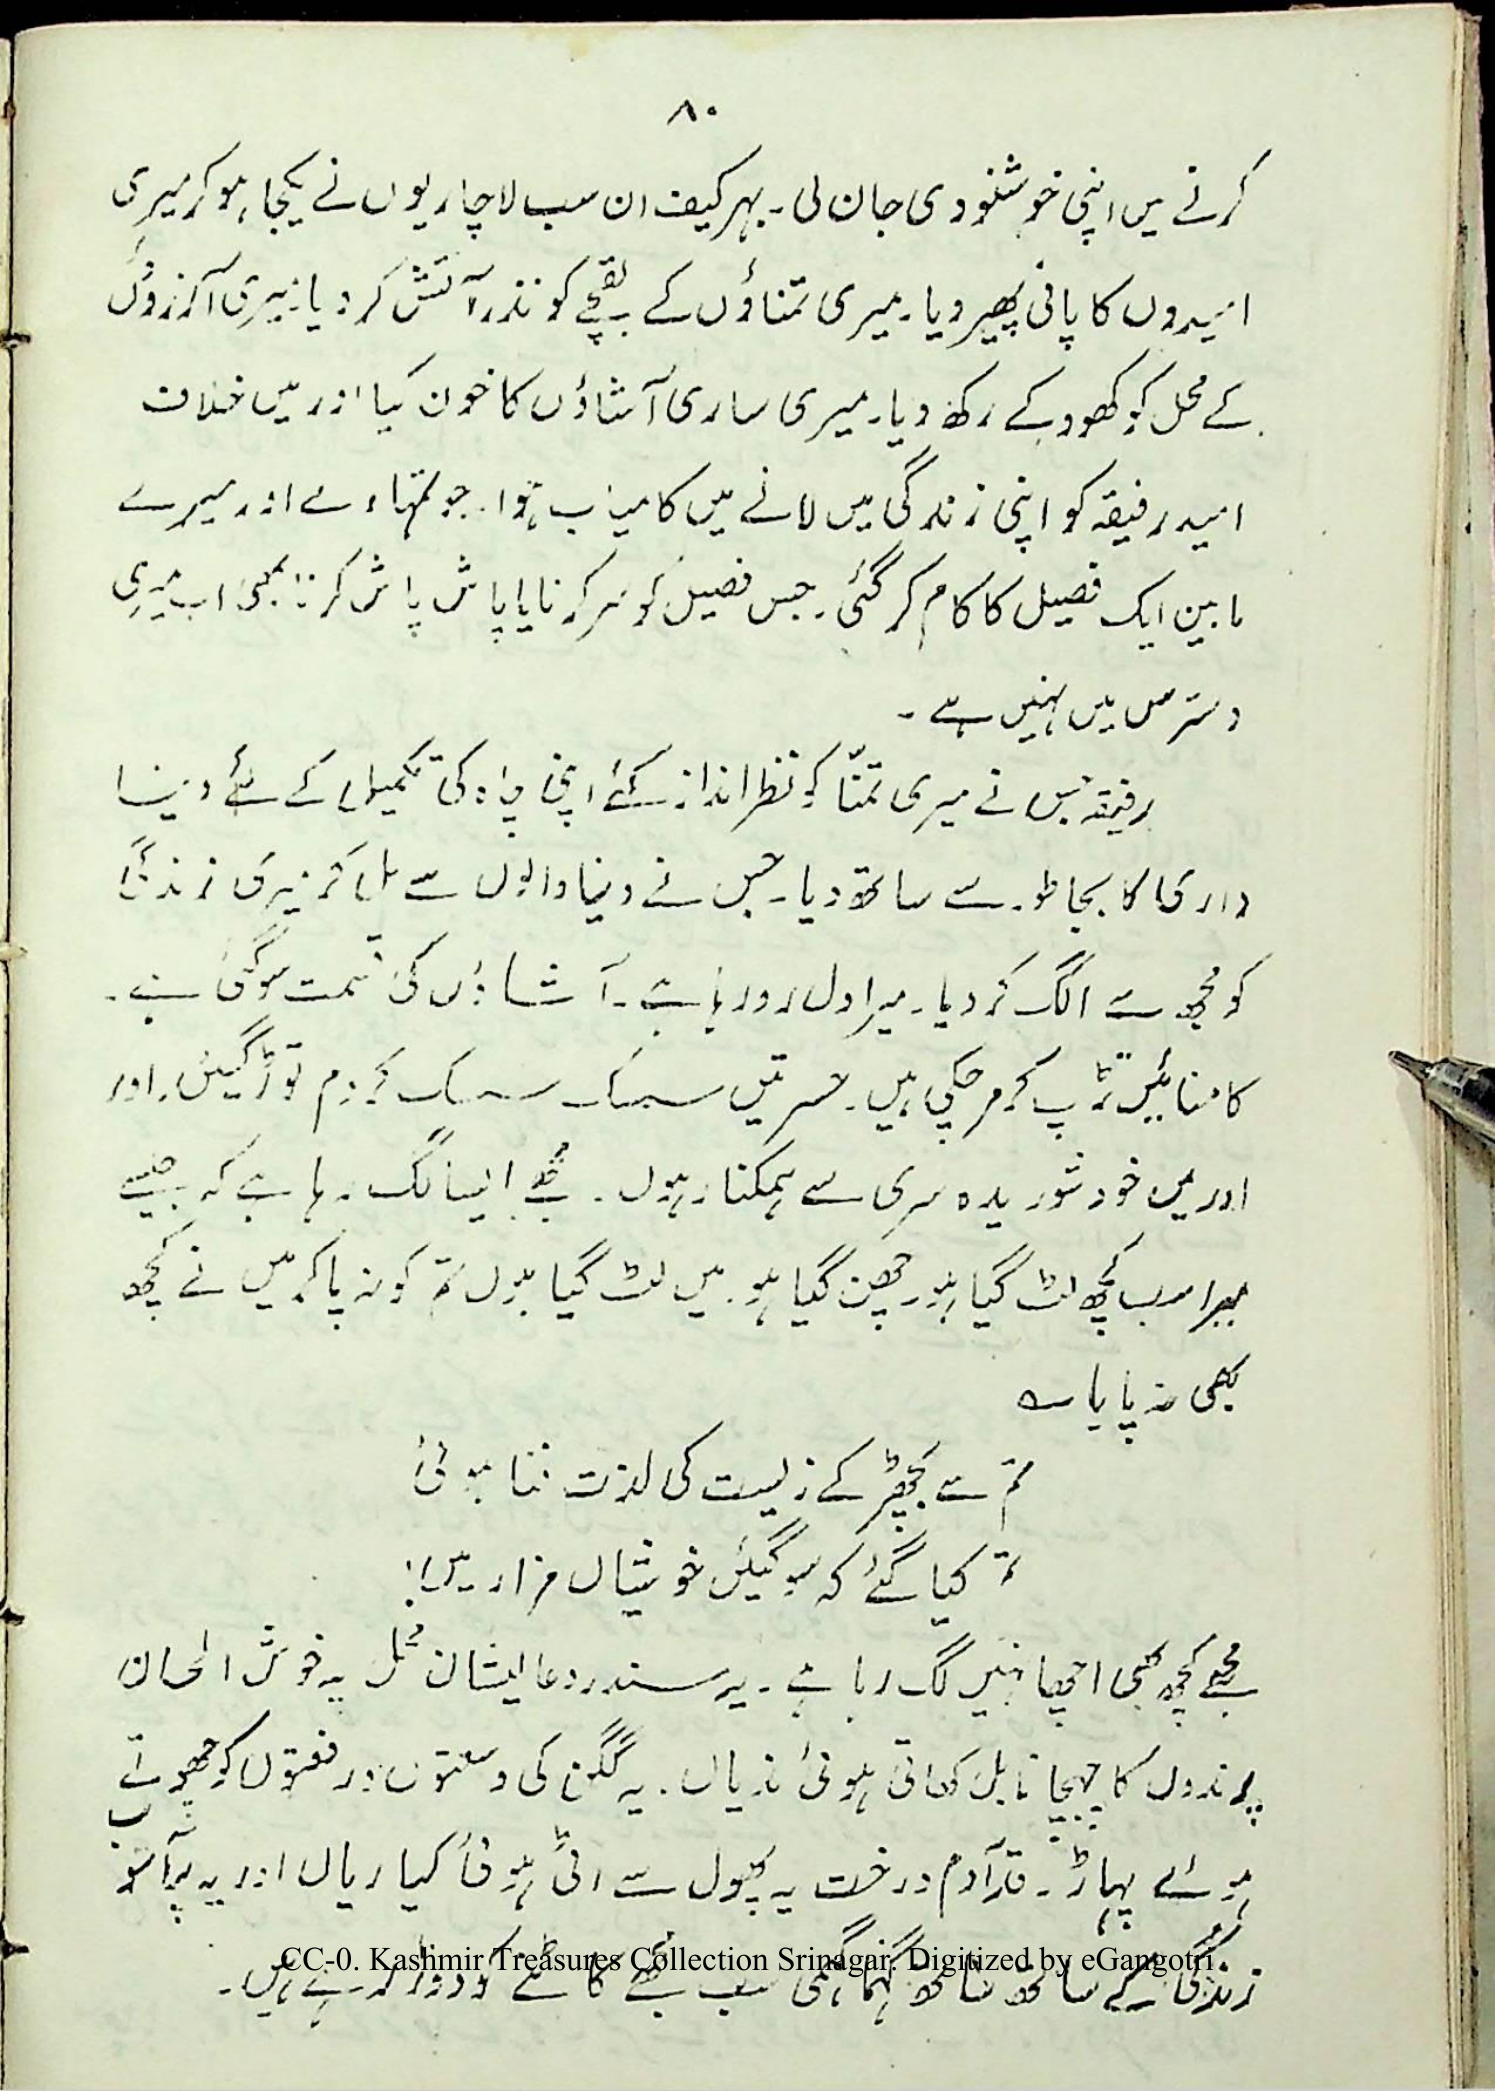 ۸۰
کرنے میں اپنی خوشنودی جان لی۔ بہرکیف ان سب لاچاریوں نے یکجا ہو کر میری
امیدوں کا پانی پھیر دیا۔ میری تمناؤں کے بقچے کو نذر آتش کر دیا۔ میری آرزوؤں
کے محل کو کھود کے رکھ دیا۔ میری ساری آشاؤں کا خون کیا اور میں خلاف
امید رفیقہ کو اپنی زندگی میں لانے میں کامیاب ہوا۔ جو تمہارے اور میرے
مابین ایک فصیل کا کام کر گئی۔ جس فصیل کو سر کرنا یا پاش پاش کرنا بھی اب میری
دسترس میں نہیں ہے۔
رفیقہ جس نے میری تمنّا کو نظر انداز کئے اپنی چاہ کی تکمیل کے لئے دنیا
داری کا بجا طور سے ساتھ دیا۔ جس نے دنیا والوں سے مل کر میری زندگی
کو مجھ سے الگ کر دیا۔ میرا دل رو رہا ہے۔ آشاؤں کی قسمت سو گئی ہے۔
کامنائیں تڑپ کر مر چکی ہیں۔ حسرتیں سسک سسک کر دم توڑ گئیں۔ اور
اور میں خود شوریدہ سری سے ہمکنار ہوں۔ مجھے ایسا لگ رہا ہے کہ جیسے
میرا سب کچھ لٹ گیا ہو۔ چھن گیا ہو۔ میں لٹ گیا ہوں تم کو نہ پا کر میں نے کچھ
بھی نہ پایا ؎
تم سے بچھڑ کے زیست کی لذت فنا ہوئی
تم کیا گئے کہ سو گئیں خوشیاں مزار میں!
مجھے کچھ بھی اچھا نہیں لگ رہا ہے۔ یہ سندر و عالیشان محل یہ خوش الحان
پرندوں کا چہچہانا بل کھاتی ہوئی ندیاں۔ یہ گگن کی وسعتوں و رفعتوں کو چھوتے
ہوئے پہاڑ۔ قد آدم درخت یہ پھول سے اٹی ہوئی کیاریاں اور یہ پُر آشوب
زندگی کے ساتھ ساتھ گہما گہمی سب مجھے کاٹنے کو دوڑ رہے ہیں۔
CC-0. Kashmir Treasures Collection Srinagar. Digitized by eGangotri